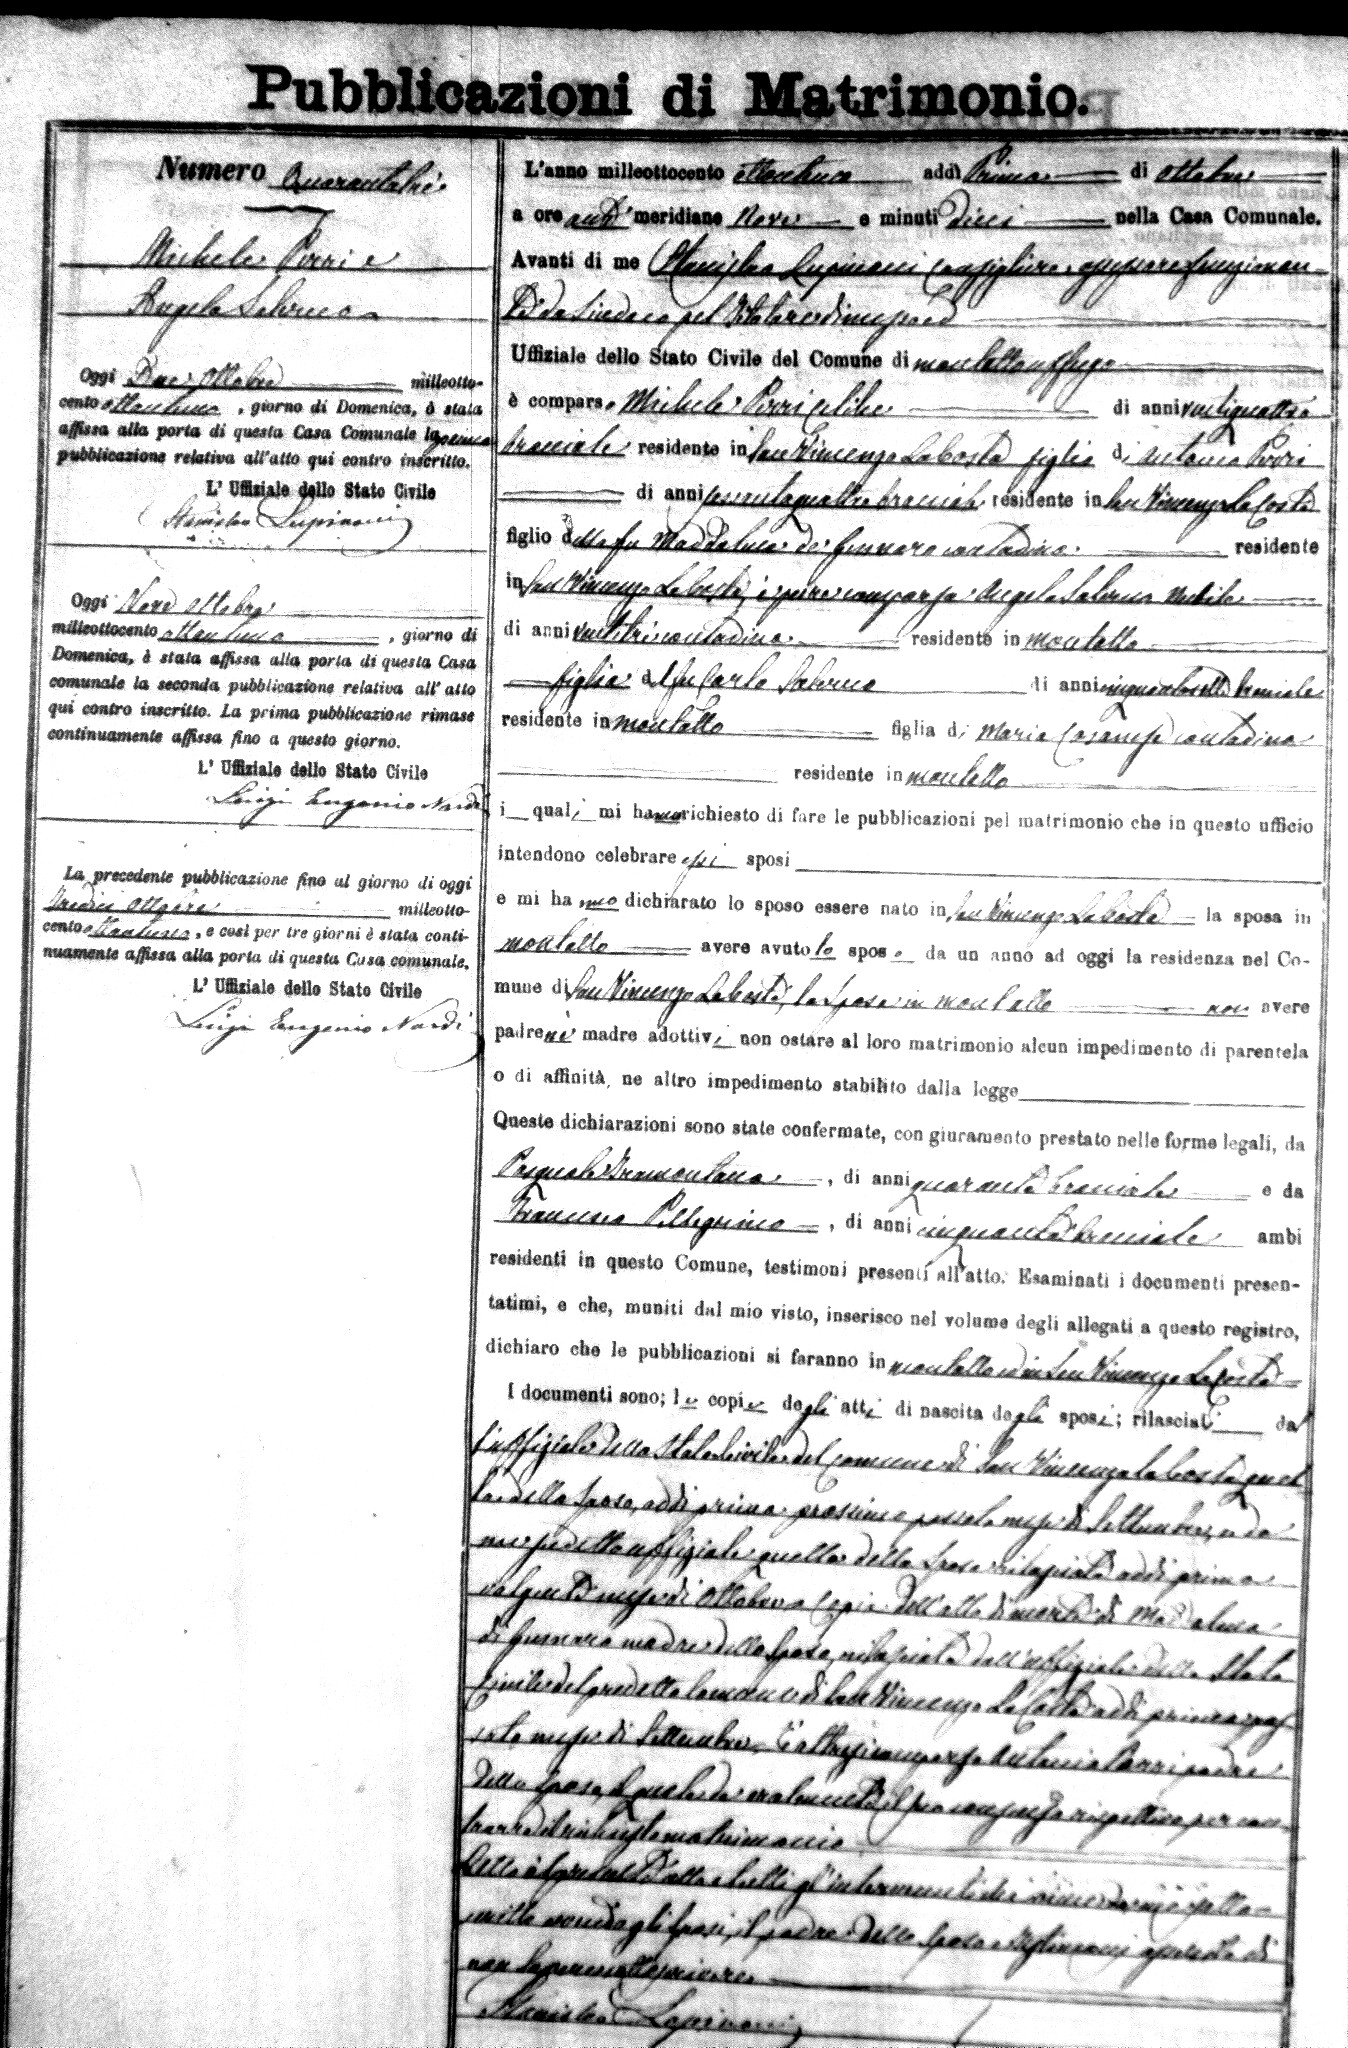 Pubblicazioni di Matrimonio.
Numero Quarantatrè
Michele Pirri e
Angela Salerno
Oggi Due Ottobre milleotto-
cento ottantuno, giorno di Domenica, è stata
affissa alla porta di questa Casa Comunale la prima
pubblicazione relativa all'atto qui contro inscritto.
L' Uffiziale dello Stato Civile
Stanislao Lupinacci
Oggi Nove Ottobre
milleottocento ottantuno, giorno di
Domenica, è stata affissa alla porta di questa Casa
comunale la seconda pubblicazione relativa all' atto
qui contro inscritto. La prima pubblicazione rimase
continuamente affissa fino a questo giorno.
L' Uffiziale dello Stato Civile
Luigi Eugenio Nardi
La precedente pubblicazione fino al giorno di oggi
Tredici Ottobre milleotto-
cento ottantuno, e così per tre giorni è stata conti-
nuamente affissa alla porta di questa Casa comunale.
L' Uffiziale dello Stato Civile
Luigi Eugenio Nardi
L'anno milleottocento ottantuno addì Primo di Ottobre
a ore anti meridiane Nove e minuti Dieci nella Casa Comunale.
Avanti di me Stanislao Lupinacci Consigliere, assessore funzionan
te da Sindaco pel titolare dimesso ed
Uffiziale dello Stato Civile del Comune di Montalto Uffugo
è comparso Michele Pirri Celibe di anni ventiquattro
bracciale residente in San Vincenzo La Costa figlio di Antonio Pirri
di anni sessantaquattro bracciale residente in San Vincenzo La Costa
figlio della fu Maddalena de Gennaro contadina residente
in San Vincenzo La Costa, è pure comparsa Angela Salerno Nubile
di anni ventitre contadina residente in Montalto
figlia del fu Carlo Salerno di anni cinquantasette bracciale
residente in Montalto figlia di Maria Cosanese contadina
residente in Montalto
i quali mi hanno richiesto di fare le pubblicazioni pel matrimonio che in questo ufficio
intendono celebrare essi sposi
e mi hanno dichiarato lo sposo essere nato in San Vincenzo La Costa la sposa in
Montalto avere avuto lo sposo da un anno ad oggi la residenza nel Co-
mune di San Vincenzo La Costa, la sposa in Montalto non avere
padre nè madre adottivi non ostare al loro matrimonio alcun impedimento di parentela
o di affinità, ne altro impedimento stabilito dalla legge
Queste dichiarazioni sono state confermate, con giuramento prestato nelle forme legali, da
Pasquale Tramontana, di anni quaranta bracciale e da
Francesco Pellegrino, di anni cinquanta bracciale ambi
residenti in questo Comune, testimoni presenti all'atto. Esaminati i documenti presen-
tatimi, e che, muniti dal mio visto, inserisco nel volume degli allegati a questo registro,
dichiaro che le pubblicazioni si faranno in Montalto ed in San Vincenzo La Costa
I documenti sono; le copie degli atti di nascita degli sposi; rilasciati dal
l'uffiziale dello Stato Civile del Comune di San Vincenzo La Costa quel
la dello sposo, addì primo prossimo passato mese di Settembre, e da
me suddetto uffiziale quella della sposa rilasciata addì primo
volgente mese di Ottobre. Copia dell'atto di morte di Maddalena
di Gennaro madre dello sposo, rilasciata dall'uffiziale dello Stato
Civile del predetto Comune di San Vincenzo La Costa addì primo pas
sato mese di Settembre. È altresì comparso Antonio Pirri padre
dello sposo, il quale dà oralmente il suo consenso rispettivo per con
trarre il richiesto matrimonio
Letto il presente atto a tutti gl'intervenuti
il padre dello sposo e testimoni
non sapere sottoscrivere
Stanislao Lupinacci